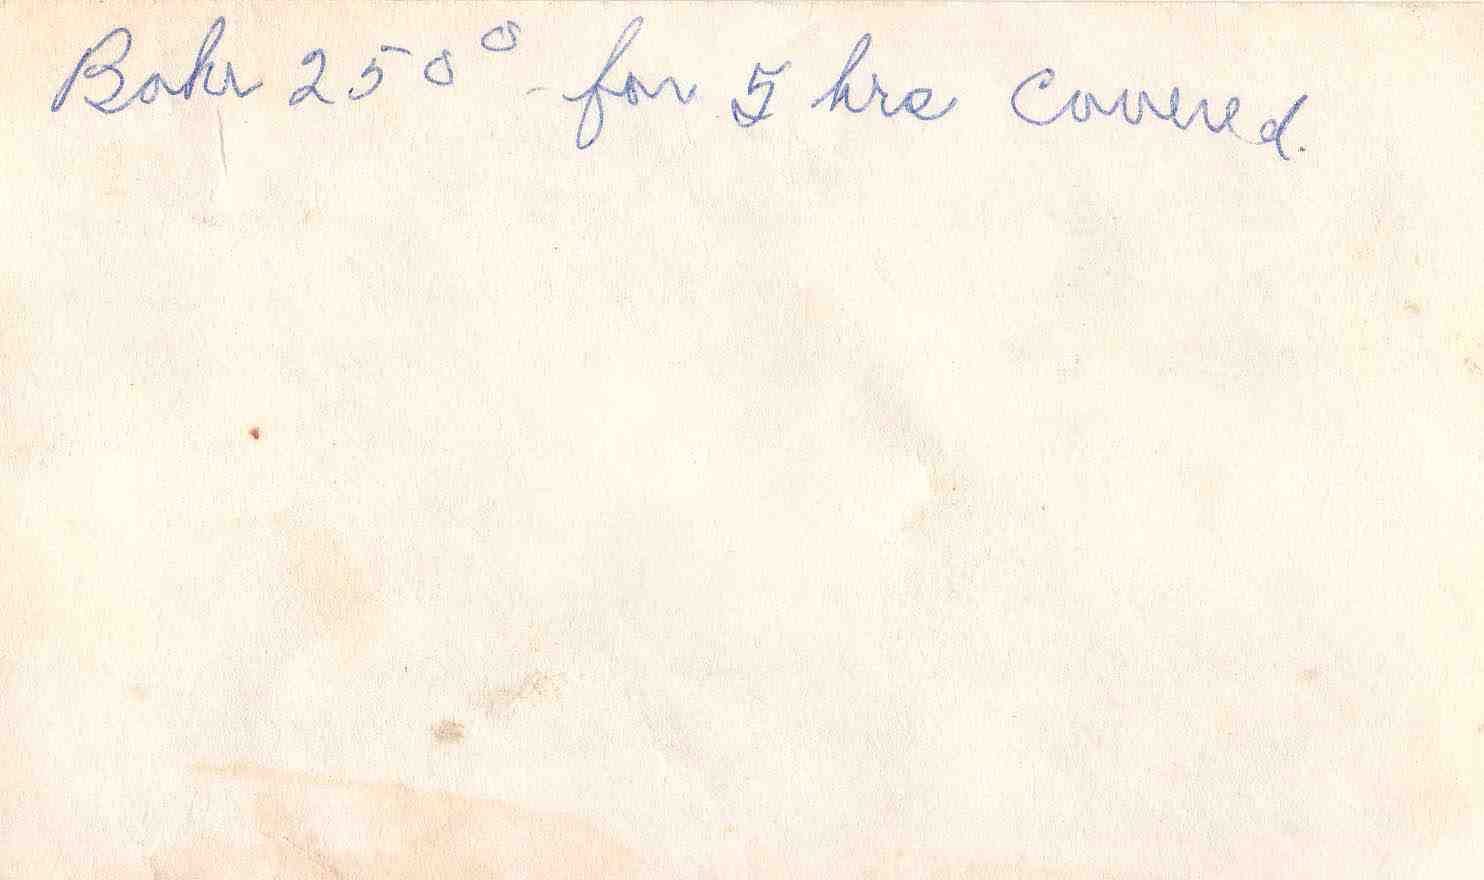 Bake 250° - for 5 hrs covered.